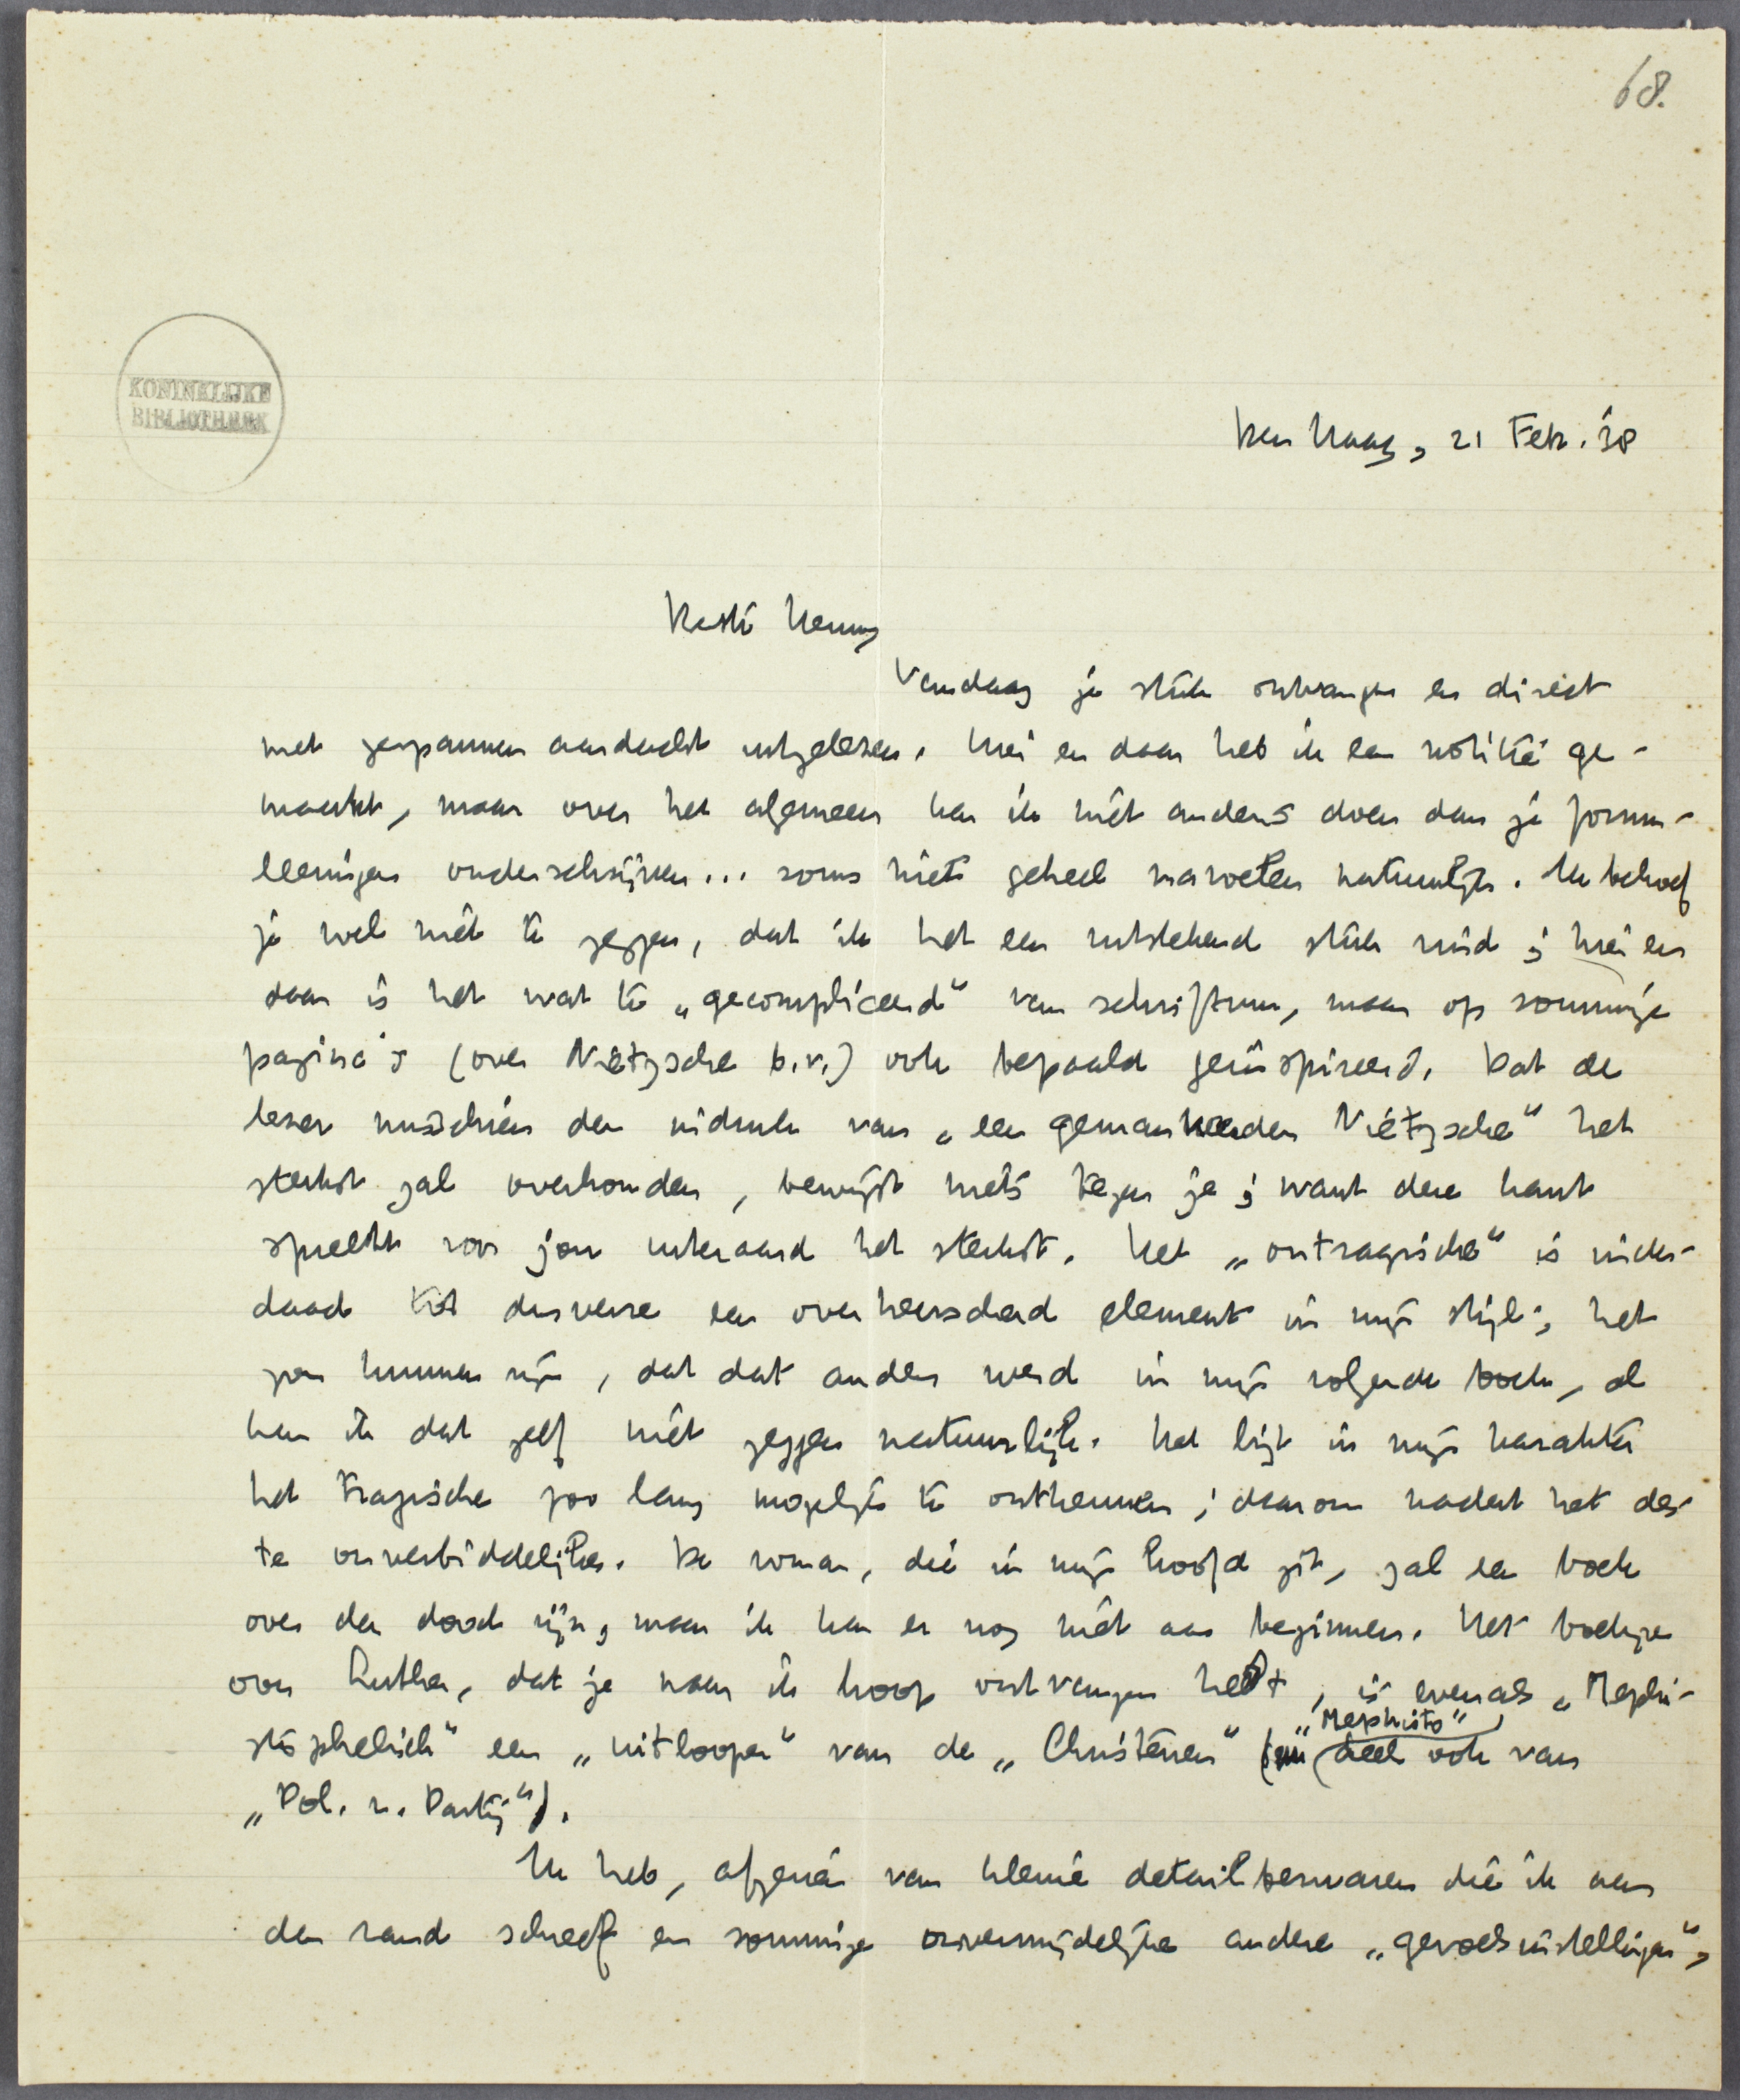 68.
KONINKLIJKE
BIBLIOTHEEK
Den Haag, 21 Febr. '38
Beste Henny
Vandaag je stuk ontvangen en direct
met gespannen aandacht uitgelezen. Hier en daar heb ik een notitie ge-
maakt, maar over het algemeen kan ik niet anders doen dan je formu-
leeringen onderschrijven... soms niet geheel nuchter natuurlijk. Ik behoef
je wel niet te zeggen, dat ik het een uitstekend stuk vind; hier en
daar is het wat te „gecompliceerd" van schriftuur, maar op sommige
pagina's (over Nietzsche b.v.) ook bepaald geïnspireerd. Dat de
lezer misschien den indruk van „een gemankeerden Nietzsche" het
sterkst zal overhouden, bewijst niets tegen je; want deze kant
spreekt voor jou uiteraard het sterkst. Het „ontragische" is inder-
daad tot dusverre een overheerschend element in mijn stijl; het
zou kunnen zijn, dat dat anders werd in mijn volgende boek, al
kan ik dat zelf niet zeggen natuurlijk. Het ligt in mijn karakter
het tragische zoo lang mogelijk te ontkennen; daarom nadert het des
te onverbiddelijker. De roman, die in mijn hoofd zit, zal een boek
over den dood zijn, maar ik kan er nog niet aan beginnen. Het boekje
over Ruther, dat je naar ik hoop ontvangen hebt, is evenals „Mephi-
stophelisch" een „uitlooper" van de „Christenen" („Mephisto" deels ook van
„Pol. z. Partij").
Ik heb, afgezien van kleine detailbezwaren die ik aan
den rand schreef en sommige onvermijdelijke andere „gevoelsinstellingen",